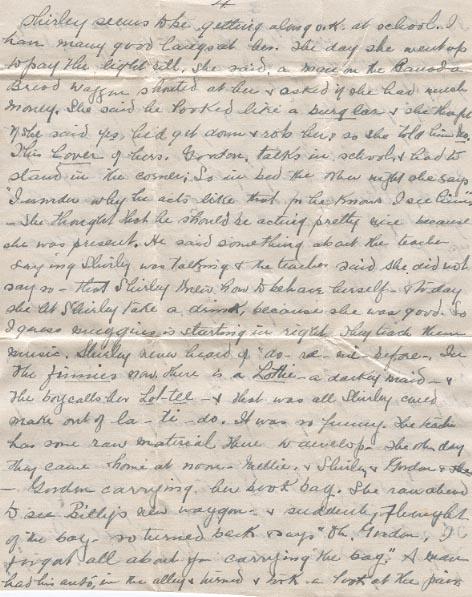 4
Shirley seems to be getting along o.k. at school. I
have many good laughs at her. The day she went up
to pay the light bill. She said, a man on the Canada
Bread wagon shouted at her & asked if she had much
money. She said he looked like a burglar & she thought
if she said yes, he'd get down & rob her, so she told him no.
This lover of hers, Gordon, talks in school, & had to
stand in the corner. So in bed the other night she says
"I wonder why he acts like that for he knows I see him"
- She thought that he should be acting pretty nice because
she was present. He said something about the teacher
saying Shirley was talking & the teacher said she did not
say so - that Shirley knew how to behave herself - & today
she let Shirley take a drink, because she was good. So
I guess is starting in right. They teach them
music. Shirley never heard of "do - ra - me before. In
the funnies now there is a Lottie - a darkey maid - &
the boy calls her Lot-tee - & that was all Shirley could
make out of la - ti - do. It was so funny. The teacher
has some raw material there to develop. The other day
they came home at noon - Nellie, & Shirley & Gordon &
- Gordon carrying her book bag. She ran ahead
to see Billy's new waggon - & suddenly thought
of the bag - so turned back & says "Oh, Gordon, I
forgot all about you carrying the bag." A man
had his auto, in the alley & turned & took a look at the pair